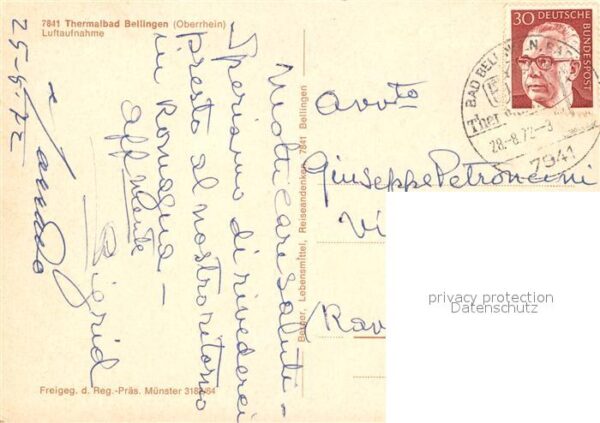 7841 Thermalbad Bellingen (Oberrhein)
Luftaufnahme
25-8-72
Molti cari saluti -
Speriamo di rivederci
presto al nostro ritorno
in Romagna -
aff/mente
Sigrid
Berger, Lebensmittel, Reiseandenken, 7841 Bellingen
Freigeg. d. Reg.-Präs. Münster 3182/64
30 DEUTSCHE BUNDESPOST
BAD BELLINGEN
Ther
28.-8.72--3
7841
Avv/to
Giuseppe Petroncini
Vi
Rav
privacy protection
Datenschutz